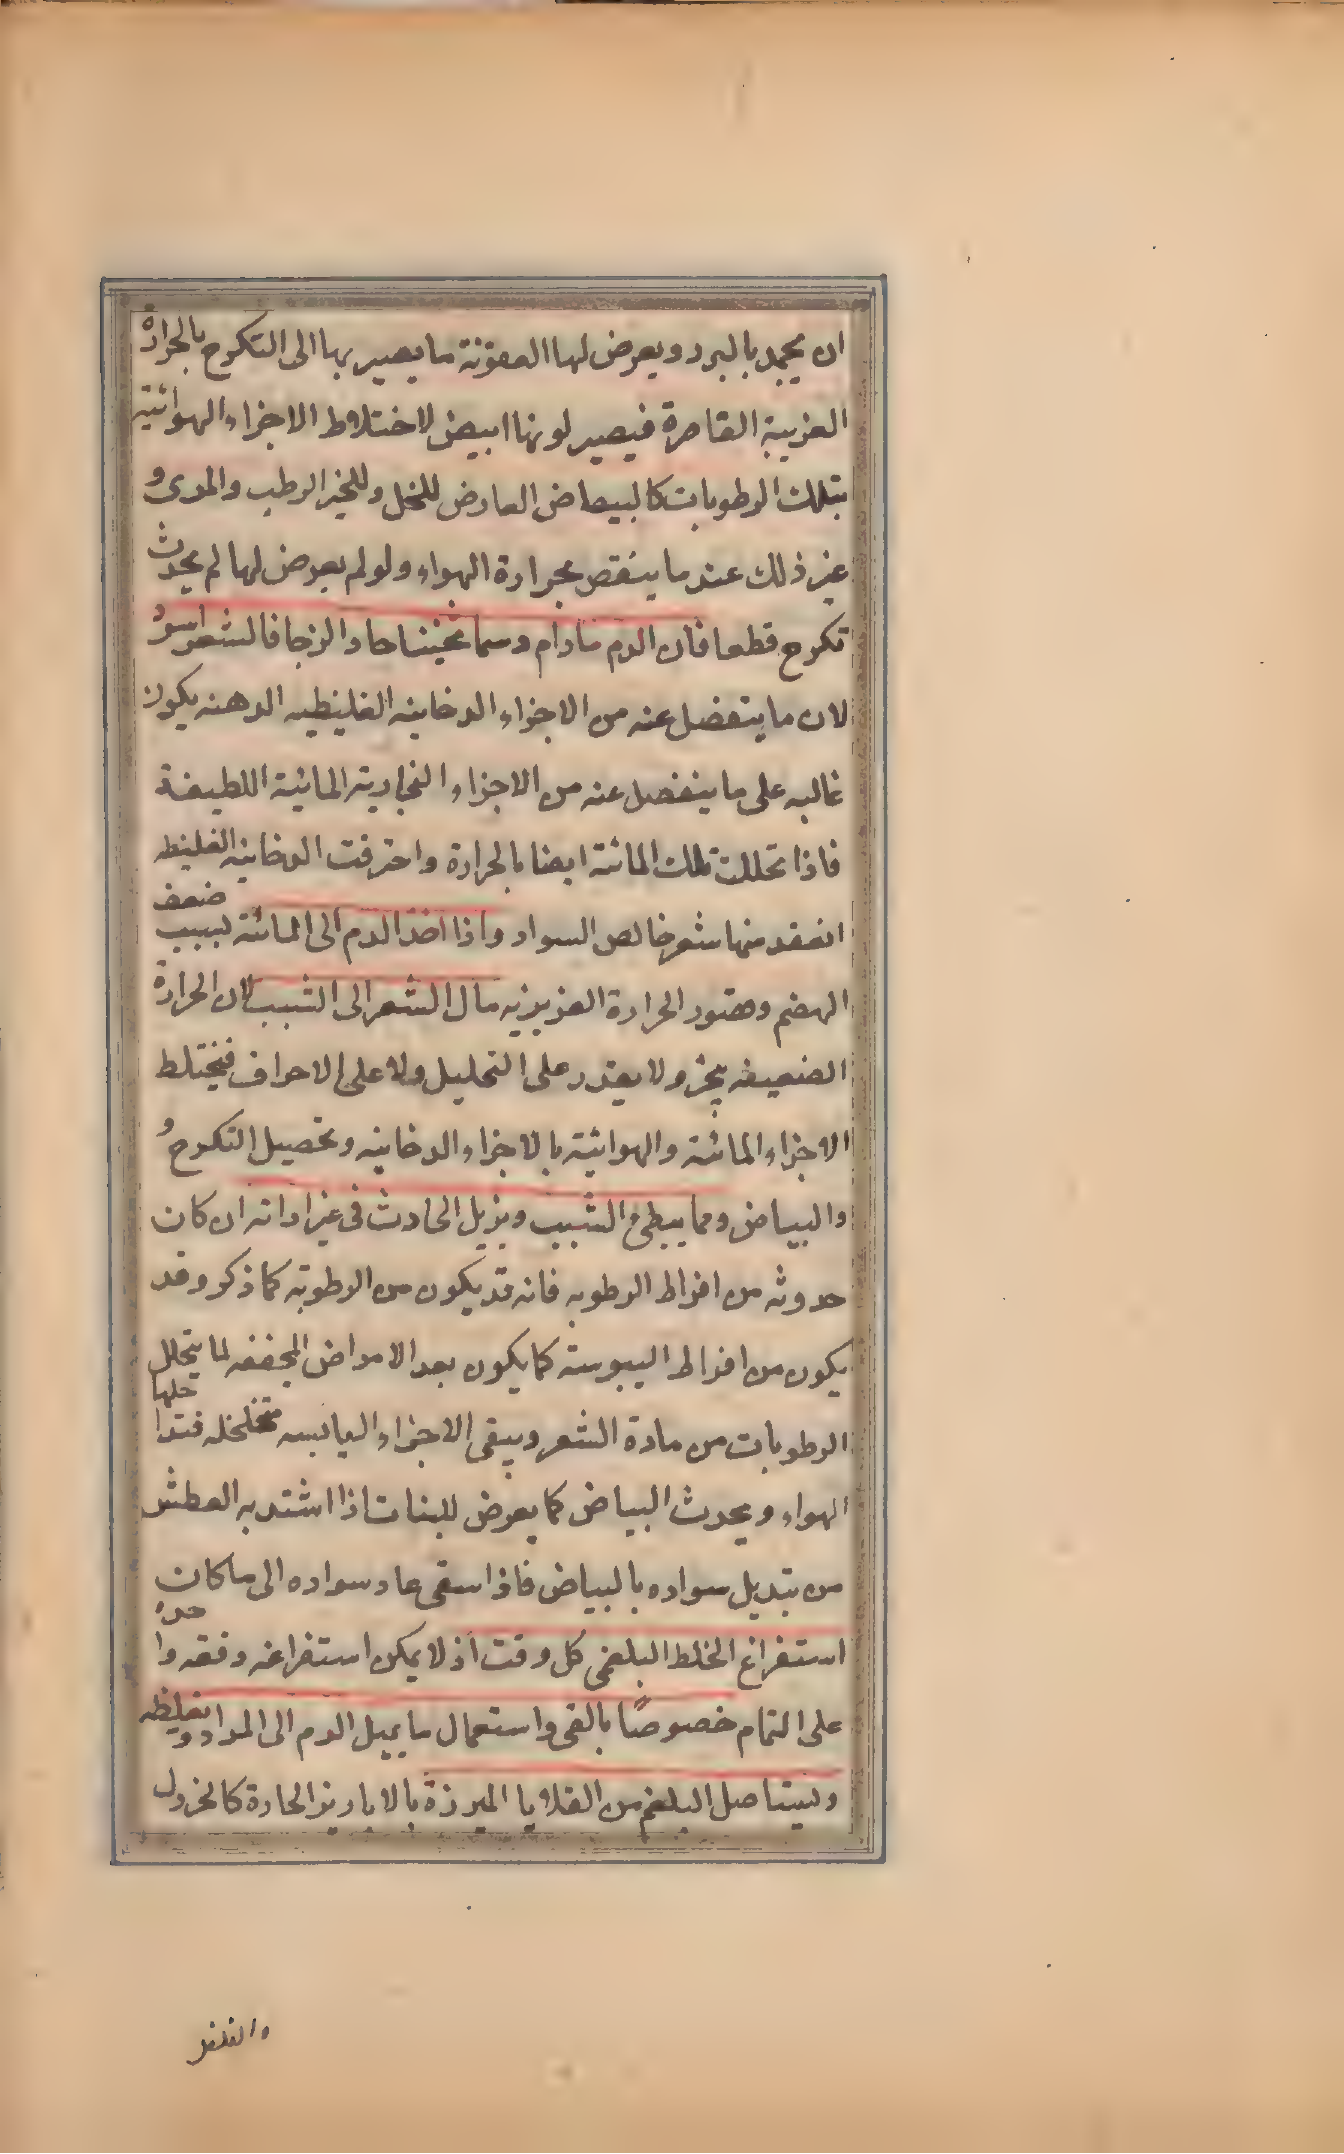 ان يجمد بالبرد ويعرض لها العفونة ما يصير بها الى التكرج بالحرارة
الغريبة القاصرة فيصير لونها ابيض لاختلاط الاجزاء الهوائية
بتلك الرطوبات كالبياض العارض للخل وللخبز الرطب والمرى و
غير ذلك عند ما ينقص بحرارة الهواء ولو لم يعرض لها لم يحدث
تكرج قطعا فان الدم مادام دسما ثخينا حارا لزجا فالشعر اسود
لان ما ينفصل عنه من الاجزاء الدخانيه الغليظيه الدهنه يكون
غالبه على ما ينفصل عنه من الاجزاء البخارية المائية اللطيفة
فاذا تحللت تلك المائية ايضا بالحرارة واحترقت الدخانيه الغليظه
انعقد منها شعر خالص السواد واذا اخذ الدم الى المائية لسبب ضعف
الهضم وفتور الحرارة الغريزيه مال الشعر الى الشيب لان الحرارة
الضعيفه يبخر ولا يقدر على التحليل ولا على الاحراق فيختلط
الاجزاء المائية والهوائية بالاجزاء الدخانيه وتحصيل التكرج و
والبياض ومما يبطئ الشيب ويزيل الحادث فى غير اوانه ان كان
حدوثه من افراط الرطوبه فانه قد يكون من الرطوبة كما ذكر وقد
يكون من افراط اليبوسته كما يكون بعد الامراض المجففه لما يتحلل
الرطوبات من مادة الشعر ويبقى الاجزاء اليابسه متخلخله فتداخلها
الهواء ويحدث البياض كما يعرض للنبات اذا اشتد به العطش
من تبديل سواده بالبياض فاذا سقى عاد سواده الى ما كان
استفراغ الخلط البلغمى كل وقت اذ لا يمكن استفراغه دفعه واحدة
على التمام خصوصًا بالقى واستعمال ما يميل الدم الى المرار وتغليظه
وليستاصل البلغم من القلايا المبرزة بالابازير الحارة كالخردل
والفلفل